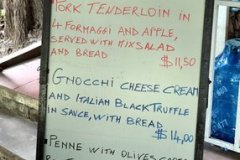 PORK TENDERLOIN IN
4 FORMAGGI AND APPLE,
SERVED WITH MIX SALAD
AND BREAD $11,50
GNOCCHI CHEESE CREAM
AND ITALIAN BLACK TRUFFLE
IN SAUCE, WITH BREAD
$14,00
PENNE WITH OLIVES CAPERS